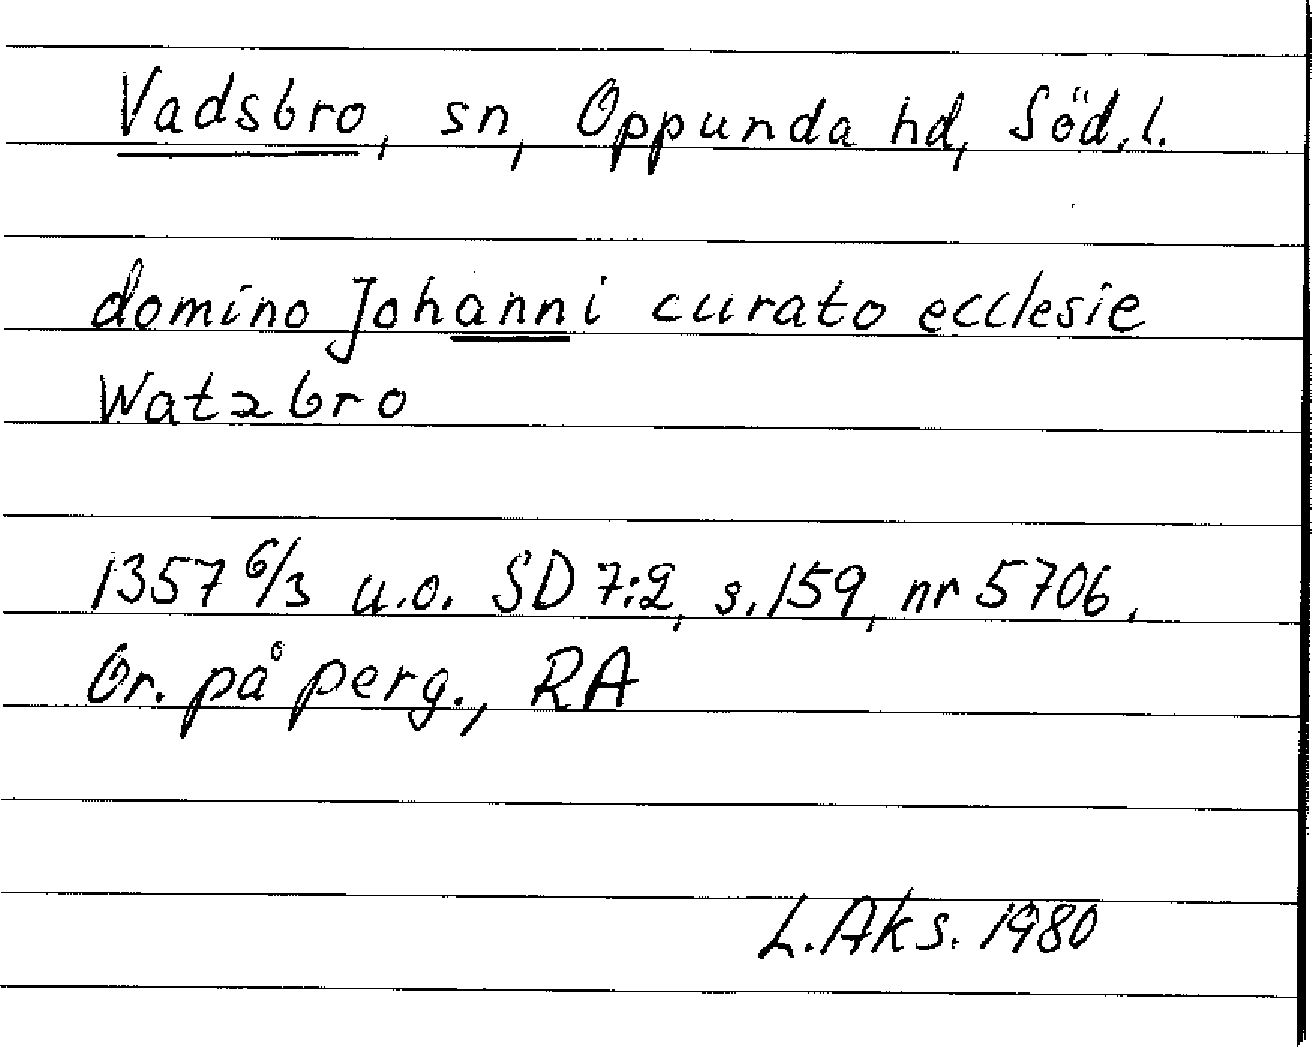 Vadsbro, sn, Oppunda hd, Söd.l.
domino Johanni curato ecclesie
Watzbro
1357 6/3 u.o. SD 7:2, s.159, nr 5706.
Or. på perg., RA
L.Aks. 1980